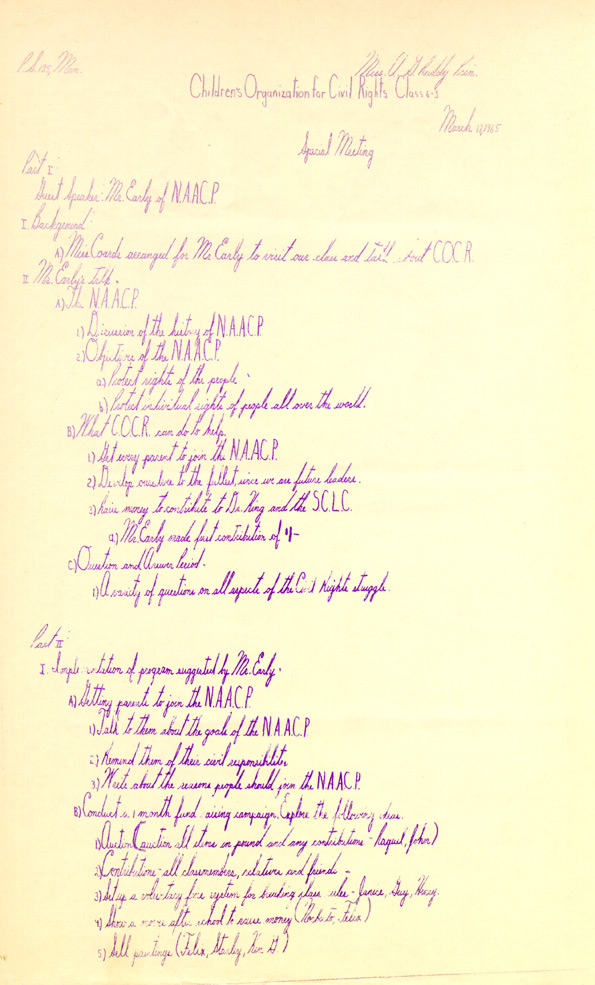 P.S. 175, Man.
Miss. U. G. Reddy Prin.
Children's Organization for Civil Rights Class 6-3
March 17, 1965
Special Meeting
Part I
Guest Speaker: Mr. Early of N.A.A.C.P.
I. Background
A) Miss Coarde arranged for Mr. Early to visit our class and talk about C.O.C.R.
II Mr. Early's talk.
A) The N.A.A.C.P.
1) Discussion of the history of N.A.A.C.P.
2) Objective of the N.A.A.C.P.
a) Protect rights of the people.
b) Protect individual rights of people all over the world.
B) What C.O.C.R. can do to help.
1) Get every parent to join the N.A.A.C.P.
2) Develop ourselves to the fullest, since we are future leaders.
3) raise money to contribute to Dr. King and the S.C.L.C.
a) Mr. Early made first contribution of
C) Question and Answer Period.
1) A variety of questions on all aspects of the Civil Rights struggle.
Part II
I. Implementation of program suggested by Mr. Early.
A) Getting parents to join the N.A.A.C.P.
1) Talk to them about the goals of the N.A.A.C.P.
2) Remind them of their civil responsibilities
3) Write about the reasons people should join the N.A.A.C.P.
B) Conduct a 1 month fund raising campaign. Explore the following ideas.
1) Auction (auction all items in pound and any contributions - Raquel, John)
2) Contributions - all classmembers, relatives and friends -
3) Set up a voluntary fine system for breaking class rules - Janice, Guy, Henry.
4) Show a movie after school to raise money (Norberto, Felix)
5) Sell paintings (Felix, Stanley, Kim G)